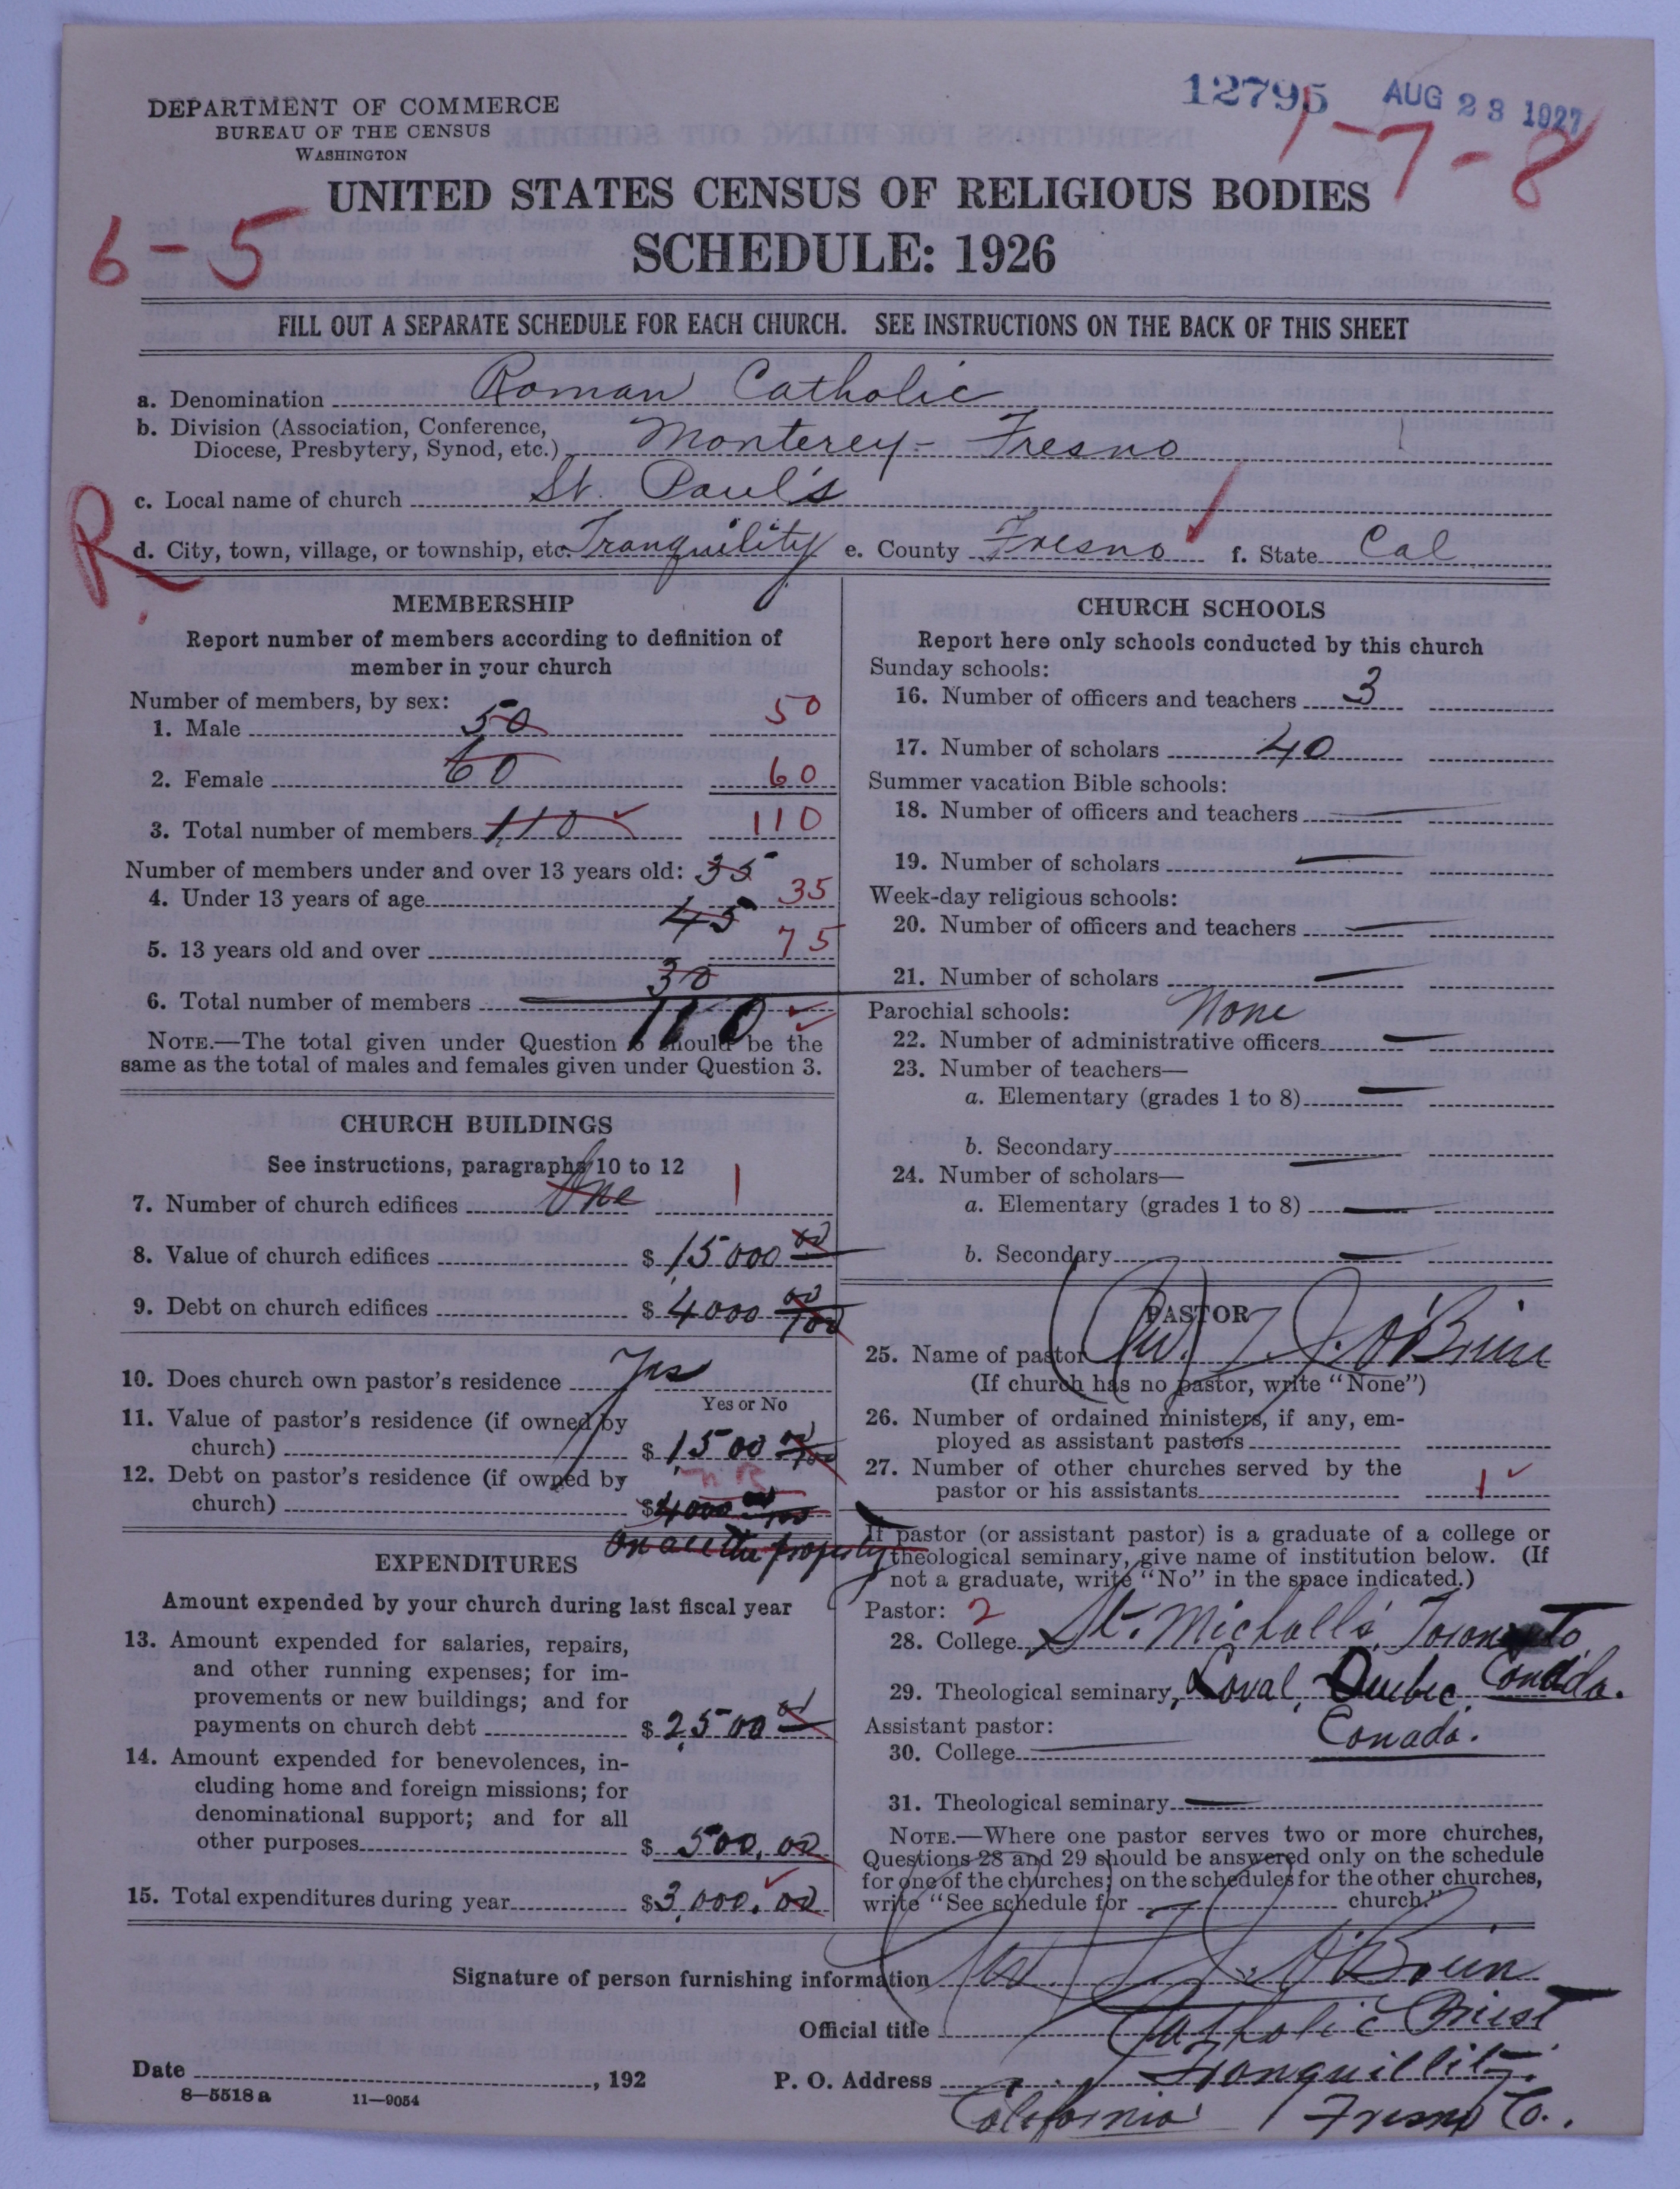 12795 AUG 23 1927
1-7-8
DEPARTMENT OF COMMERCE
BUREAU OF THE CENSUS
WASHINGTON
UNITED STATES CENSUS OF RELIGIOUS BODIES
6-5
SCHEDULE: 1926
FILL OUT A SEPARATE SCHEDULE FOR EACH CHURCH. SEE INSTRUCTIONS ON THE BACK OF THIS SHEET
a. Denomination Roman Catholic
b. Division (Association, Conference,
Diocese, Presbytery, Synod, etc.) Monterey-Fresno
c. Local name of church St. Paul's
R
d. City, town, village, or township, etc. Tranquility e. County Fresno f. State Cal
MEMBERSHIP
Report number of members according to definition of
member in your church
Number of members, by sex:
1. Male 50 50
2. Female 60 60
3. Total number of members 110 110
Number of members under and over 13 years old: 35
4. Under 13 years of age 35
45
5. 13 years old and over 75
30
6. Total number of members 110
NOTE.—The total given under Question 6 should be the
same as the total of males and females given under Question 3.
CHURCH BUILDINGS
See instructions, paragraphs 10 to 12
7. Number of church edifices One 1
8. Value of church edifices $ 15000 00
9. Debt on church edifices $ 4000 00/100
10. Does church own pastor's residence Yes
Yes or No
11. Value of pastor's residence (if owned by
church) $ 1500 00/100
12. Debt on pastor's residence (if owned by
n R
church) $ 4000 00/100
on all the property
EXPENDITURES
Amount expended by your church during last fiscal year
13. Amount expended for salaries, repairs,
and other running expenses; for im-
provements or new buildings; and for
payments on church debt $ 2500 00
14. Amount expended for benevolences, in-
cluding home and foreign missions; for
denominational support; and for all
other purposes $ 500.00
15. Total expenditures during year $ 3,000.00
CHURCH SCHOOLS
Report here only schools conducted by this church
Sunday schools:
16. Number of officers and teachers 3
17. Number of scholars 40
Summer vacation Bible schools:
18. Number of officers and teachers —
19. Number of scholars —
Week-day religious schools:
20. Number of officers and teachers —
21. Number of scholars —
Parochial schools: None
22. Number of administrative officers —
23. Number of teachers—
a. Elementary (grades 1 to 8) —
b. Secondary —
24. Number of scholars—
a. Elementary (grades 1 to 8) —
b. Secondary —
PASTOR
25. Name of pastor J. O'Brien
(If church has no pastor, write "None")
26. Number of ordained ministers, if any, em-
ployed as assistant pastors
27. Number of other churches served by the
pastor or his assistants 1
If pastor (or assistant pastor) is a graduate of a college or
theological seminary, give name of institution below. (If
not a graduate, write "No" in the space indicated.)
Pastor: 2
28. College St. Michall's, Toronto
Canada.
29. Theological seminary, Laval, Quebec
Assistant pastor: Canada.
30. College —
31. Theological seminary —
NOTE.—Where one pastor serves two or more churches,
Questions 28 and 29 should be answered only on the schedule
for one of the churches; on the schedules for the other churches,
write "See schedule for church."
Signature of person furnishing information J. O'Brien
Official title Catholic Priest
Date , 192 P. O. Address Tranquillity.
8—5518 a 11—9054
California Fresno Co.